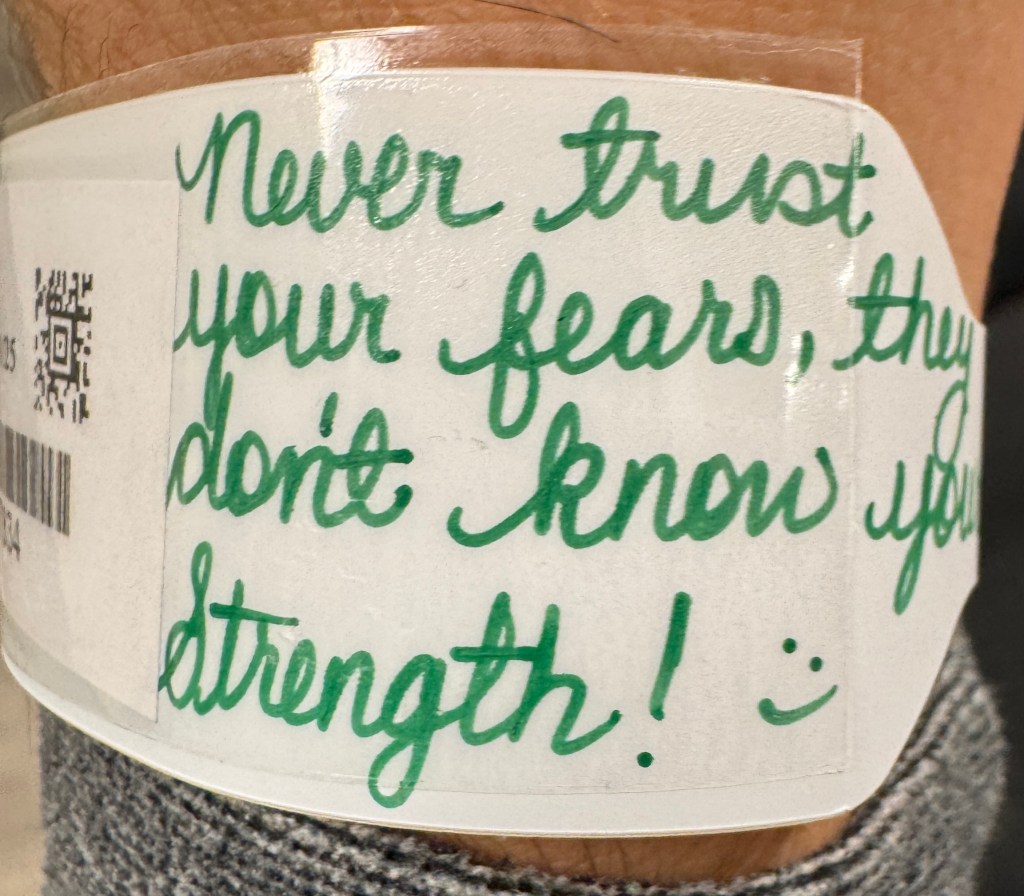 Never trust
your fears, they
don't know you
Strength! :)
25
334